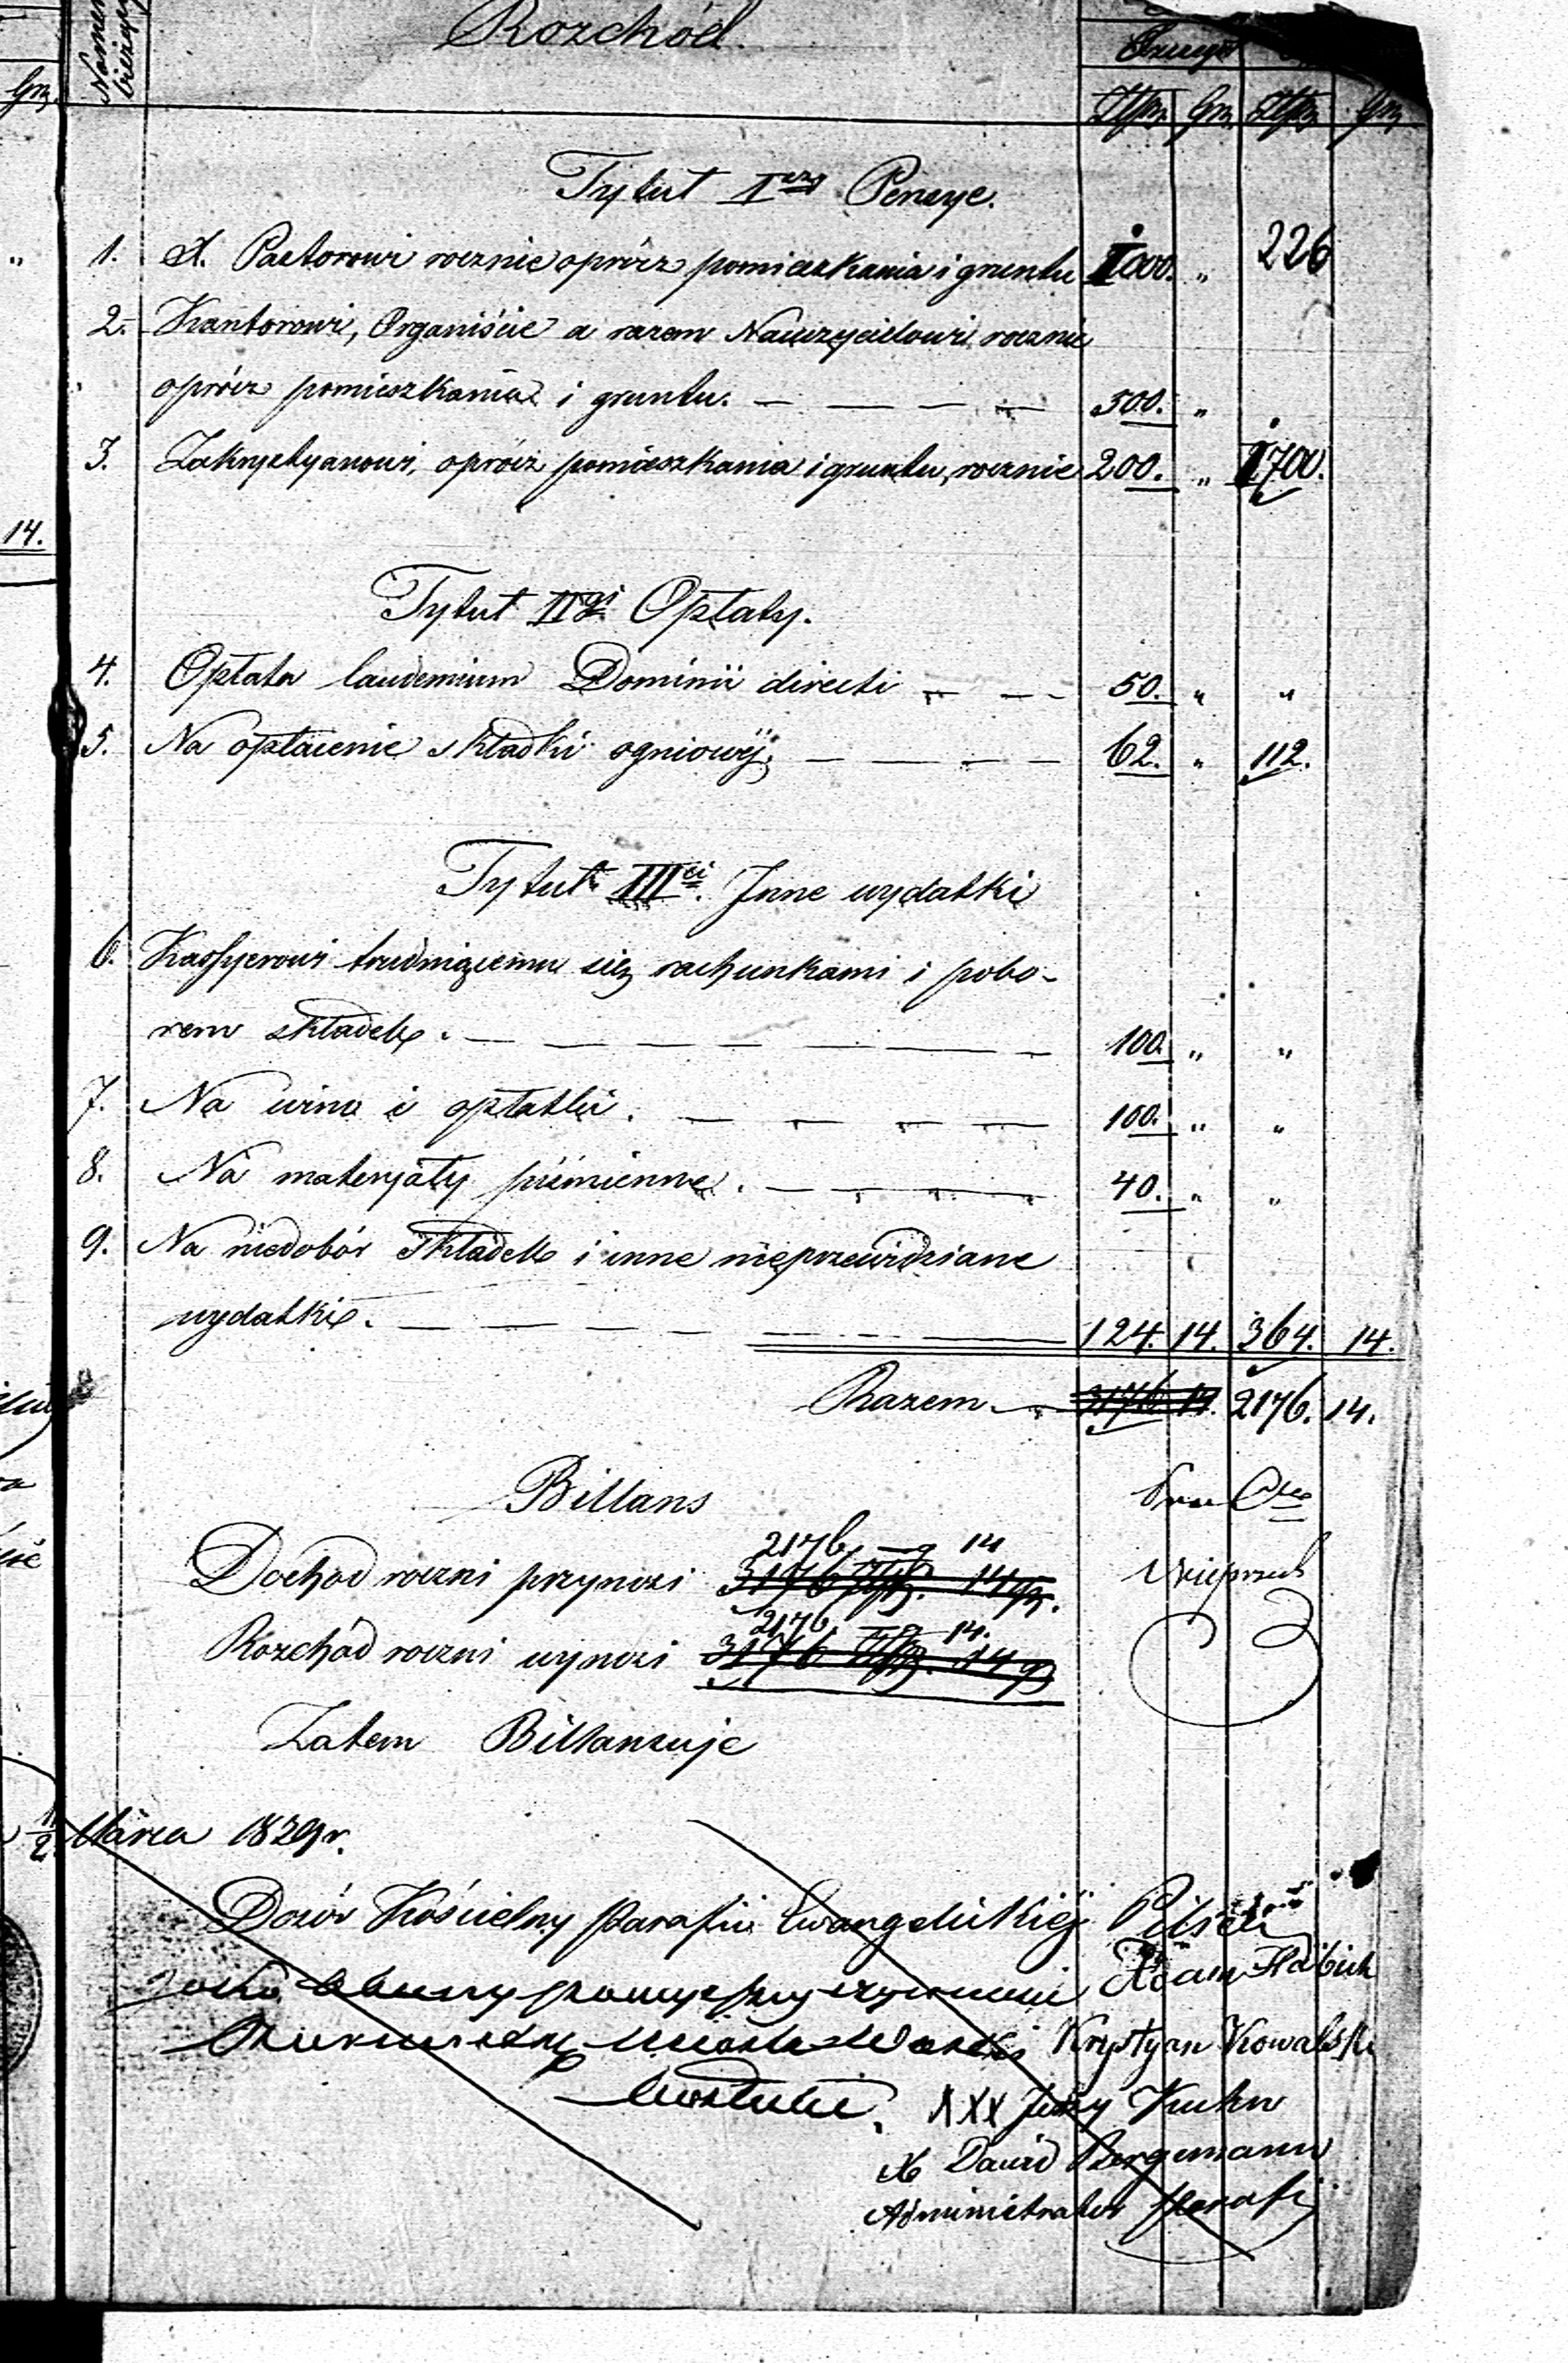 Rozchód.
Numer
Złp. Gr. Złp. Gr.
Gr.
Tytuł Iszy Pensye.
1. X. Pastorowi rocznie oprócz pomieszkania i gruntu 1000. " 226
2. Kantorowi, Organiście a razem Nauczycielowi rocznie
oprócz pomieszkania i gruntu. — — — — 500. "
3. Zakrystyanowi, oprócz pomieszkania i gruntu, rocznie 200. " 1700.
14.
Tytuł IIgi Opłaty.
4. Opłata laudemium Dominii directi — — — 50. " "
5. Na opłacenie składki ogniowéj. — — — — 62. " 112.
Tytuł IIIci. Inne wydatki
6. Kassyerowi trudniącemu się rachunkami i pobo-
rem składek. — — — — — — — 100. " "
7. Na wino i opłatki. — — — — 100. " "
8. Na materyały piśmienne. — — — — 40. " "
9. Na niedobór składek i inne nieprzewidziane
wydatki. — — — — — — 124. 14. 364. 14.
Razem — 3176 14. 2176. 14.
Billans
2176 — 14
Dochód roczni przynosi 3176 Złp. 14 gr.
2176 — 14.
Rozchód roczni wynosi 3176 Złp. 14 gr
Zatem Billansuje
Marca 1829 r.
Dozór Kościelny Parafii Ewangelickiéj Pilicé
Adam Habich
Krystyan Kowalski
XXX Jerzy Kuhn
X Dawid Bergemann
Administrator Parafii